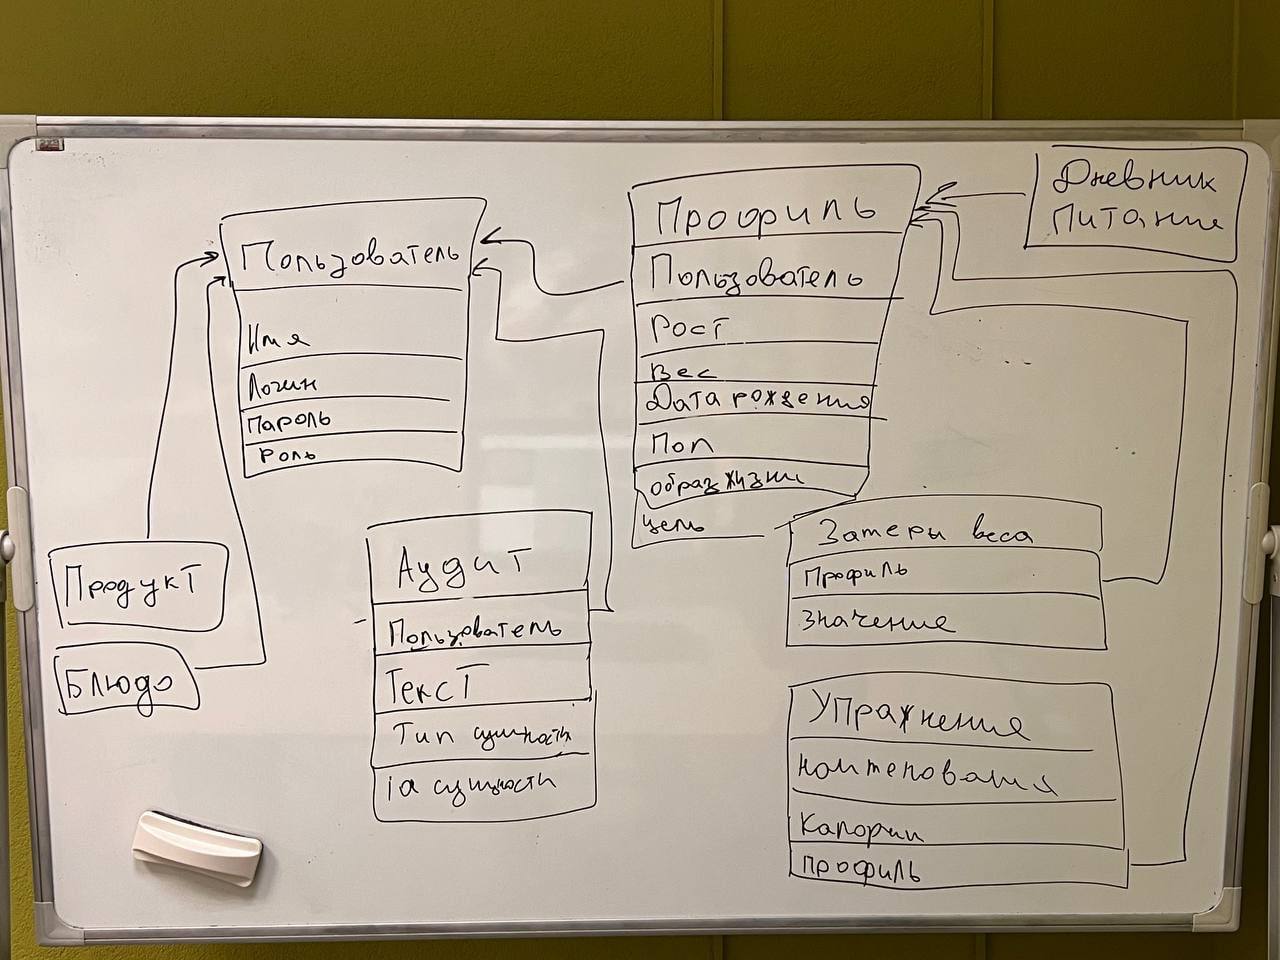 Пользователь
Имя
Логин
Пароль
Роль
Профиль
Пользователь
Рост
Вес
Дата рождения
Пол
образ жизни
цель
Дневник
Питание
Продукт
Блюдо
Аудит
Пользователь
Текст
Тип сущности
id сущности
Замеры веса
Профиль
Значение
Упражнения
Калории
профиль